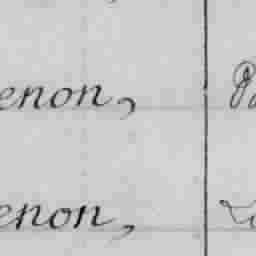 enon,
enon,